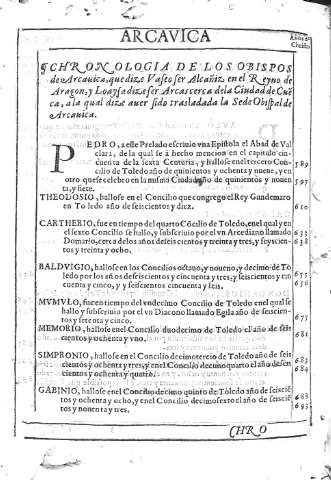 ARCAVICA
Años de
Christo
¶ CHRONOLOGIA DE LOS OBISPOS
de Arcauica, que dize Vaseo ser Alcañiz en el Reyno de
Aragon, y Loaysa dize ser Arcas cerca de la Ciudad de Cuẽ
ca, a la qual dize auer sido trasladada la Sede Obispal de
Arcauica.
PEDRO, a este Prelado escriuio vna Epistola el Abad de Val
clara, de la qual se à hecho mencion en el capitulo cin-
cuenta de la sexta Centuria, y hallose en el tercero Con-
cilio de Toledo año de quinientos y ochenta y nueue, y en 589
otro que se celebro en la misma Ciudad año de quinientos y nouen 597
ta, y siete.
THEODOSIO, hallose en el Concilio que congrego el Rey Gundemaro
en Toledo año de seiscientos y diez. 610
CARTHERIO, fue en tiempo del quarto Cõcilio de Toledo, en el qual y en
el sexto Concilio se hallo, y subscriuio por el vn Arcediano llamado 633
Domario, cerca de los años de seiscientos y treinta y tres, y seyscien- 638
tos y treinta y ocho.
BALDVIGIO, hallose en los Concilios octauo, y noueno, y decimo de To
ledo por los años de seiscientos y cincuenta y tres, y seiscientos y cin 653
cuenta y cinco, y y seiscientos cincuenta y seis. 656
MVMVLO, fue en tiempo del vndecimo Concilio de Toledo en el qual se
hallo y subscriuio por el vn Diacono llamado Egila año de seiscien-
tos y setenta y cinco. 675
MEMORIO, hallose en el Concilio duodecimo de Toledo el año de seis
cientos y ochenta y vno. 681
SIMPRONIO, hallose en el Concilio decimotercio de Toledo año de seis
cientos y ochenta y tres, y en el Concilio decimoquarto el año de seis 683
cientos y ochenta y quatro. 684
GABINIO, hallose en el Concilio decimo quinto de Toledo año de seisciẽ
tos y ochenta y ocho, y en el Concilio decimosexto el año de seisciẽ 688
tos y nouenta y tres. 693
CHRO